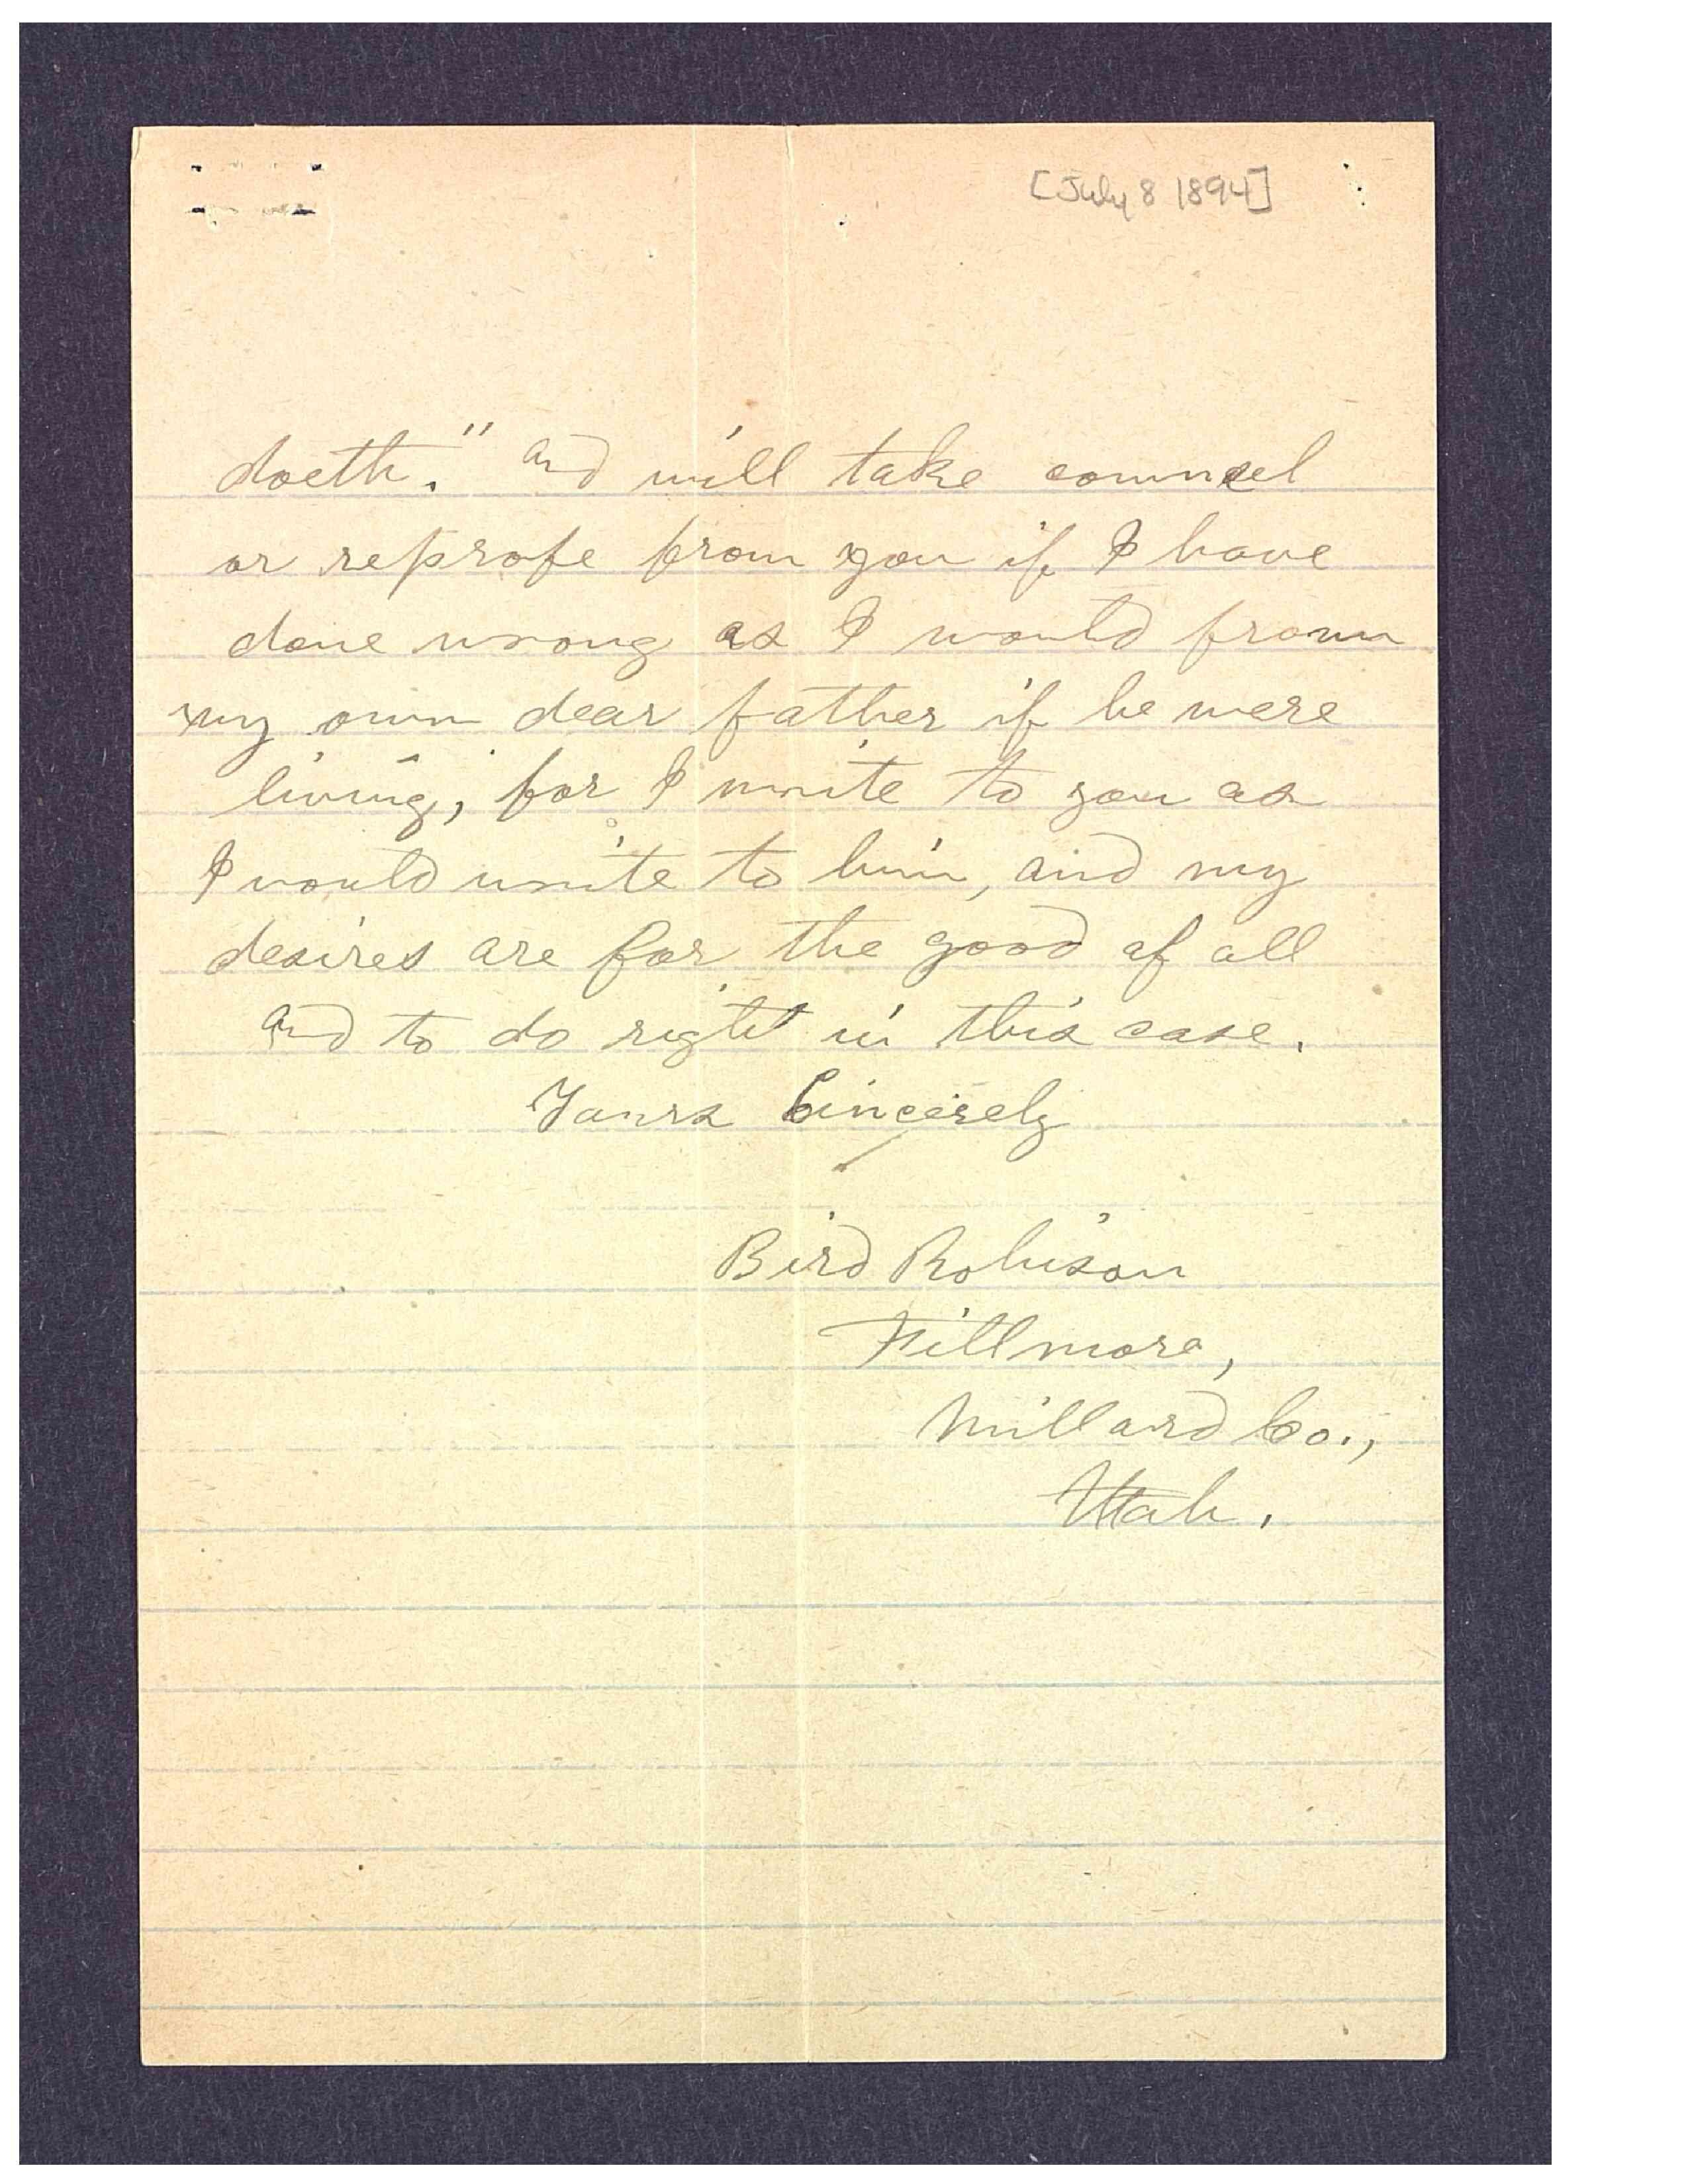 [July 8 1894]
doeth." and will take counsel
or reprofe from you if I have
done wrong as I would from
my own dear father if he were
living, for I write to you as
I would write to him, and my
desires are for the good of all
and to do right in this case.
Yours Sincerely
Bird Robison
Fillmore,
Millard Co.,
Utah.